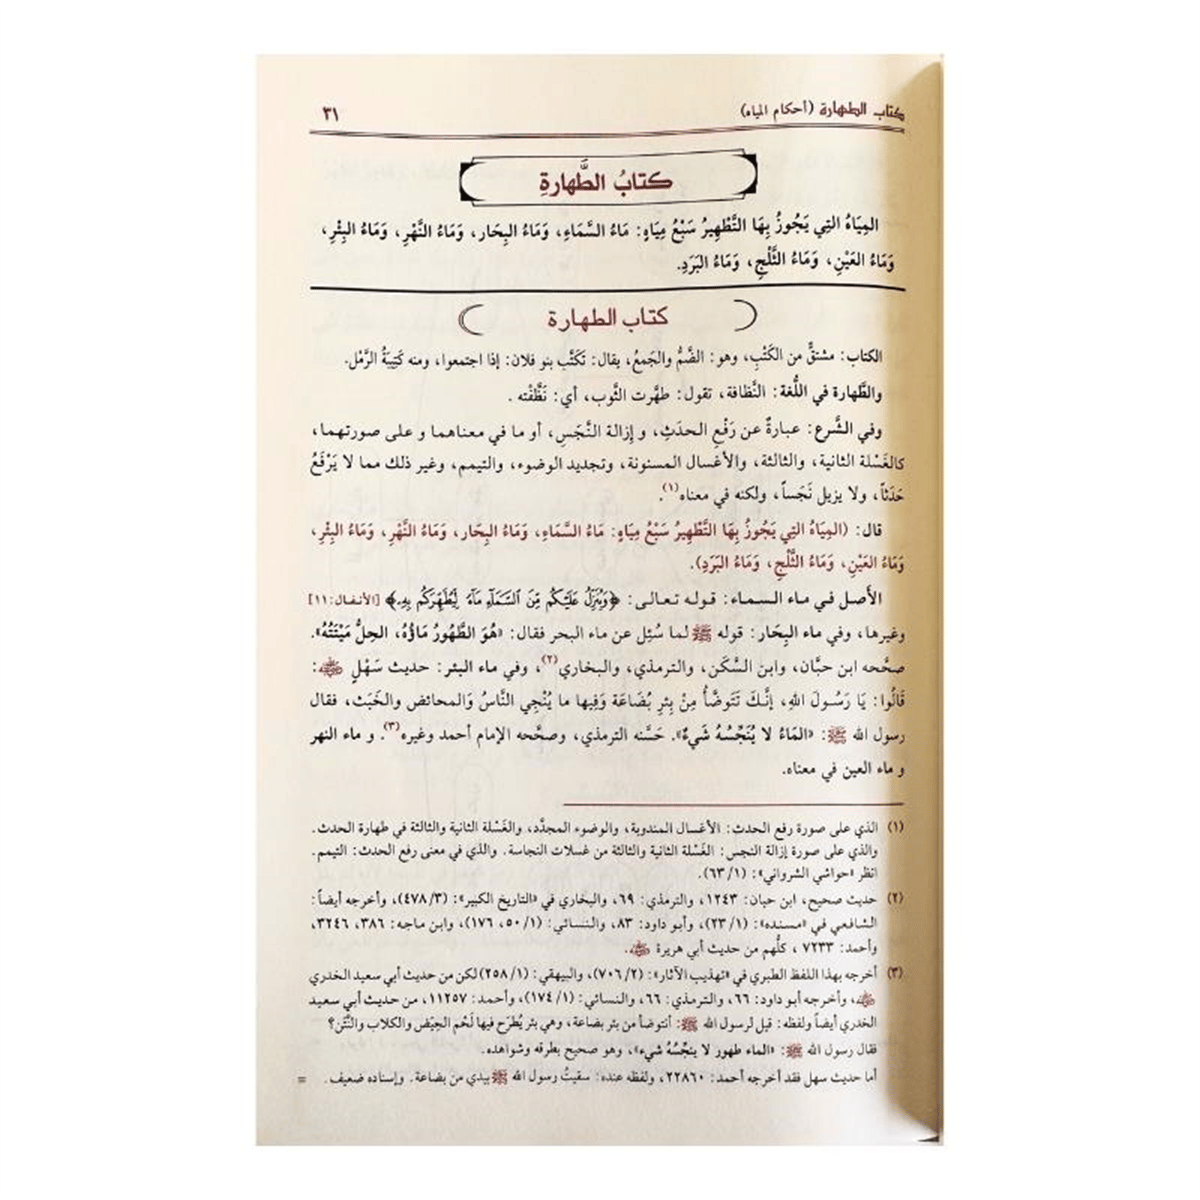 كتاب الطهارة (أحكام المياه)
٣١
كتابُ الطَّهارةِ
المِيَاهُ التِي يَجُوزُ بِهَا التَّطْهِيرُ سَبْعُ مِيَاهٍ: مَاءُ السَّمَاءِ، وَمَاءُ البِحَار، وَمَاءُ النَّهْرِ، وَمَاءُ البِئْرِ،
وَمَاءُ العَيْنِ، وَمَاءُ الثَّلْجِ، وَمَاءُ البَرَدِ.
كتاب الطهارة
الكتاب: مشتقٌّ من الكَتْبِ، وهو: الضَّمُّ والجَمعُ، يقال: تَكَتَّب بنو فلان: إذا اجتمعوا، ومنه كَتِيبَةُ الرَّمْل.
والطَّهارة في اللُّغة: النَّظافة، تقول: طهَّرت الثَّوب، أي: نَظَّفْته .
وفي الشَّرع: عبارةٌ عن رَفْعِ الحدَثِ، و إزالة النَّجَسِ، أو ما في معناهما و على صورتهما،
كالغَسْلة الثانية، والثالثة، والأغسال المسنونة، وتجديد الوضوء، والتيمم، وغير ذلك مما لا يَرْفَعُ
حَدَثاً، ولا يزيل نَجَساً، ولكنه في معناه(١).
قال: (المِيَاهُ التِي يَجُوزُ بِهَا التَّطْهِيرُ سَبْعُ مِيَاهٍ: مَاءُ السَّمَاءِ، وَمَاءُ البِحَار، وَمَاءُ النَّهْرِ، وَمَاءُ البِئْرِ،
وَمَاءُ العَيْنِ، وَمَاءُ الثَّلْجِ، وَمَاءُ البَرَدِ).
الأَصل في ماء السماء: قوله تعالى: ﴿وَيُنَزِّلُ عَلَيْكُم مِّنَ السَّمَاءِ مَاءً لِّيُطَهِّرَكُم بِهِ﴾ [الأنفال:١١]
وغيرها، وفي ماء البِحَار: قوله ﷺ لما سُئِل عن ماء البحر فقال: «هُوَ الطَّهُورُ مَاؤُهُ، الحِلُّ مَيْتَتُهُ».
صحَّحه ابن حبَّان، وابن السَّكَن، والترمذي، والبخاري(٢)، وفي ماء البئر: حديث سَهْلٍ رضي الله عنه:
قَالُوا: يَا رَسُولَ اللهِ، إنَّكَ تَتَوضَّأُ مِنْ بئرِ بُضَاعَة وَفِيها ما يُنْجِي النَّاسُ وَالمحائض والخَبَث، فقال
رسول الله ﷺ: «المَاءُ لا يُنَجِّسُهُ شَيءٌ». حَسَّنه الترمذي، وصحَّحه الإمام أحمد وغيره(٣). و ماء النهر
و ماء العين في معناه.
(١) الذي على صورة رفع الحدث: الأغسال المندوبة، والوضوء المجدَّد، والغَسْلة الثانية والثالثة في طهارة الحدث.
والذي على صورة إزالة النجس: الغَسْلة الثانية والثالثة من غسلات النجاسة. والذي في معنى رفع الحدث: التيمم.
انظر «حواشي الشرواني»: (٦٣/١).
(٢) حديث صحيح، ابن حبان: ١٢٤٣، والترمذي: ٦٩، والبخاري في «التاريخ الكبير»: (٤٧٨/٣)، وأخرجه أيضاً:
الشافعي في «مسنده»: (٢٣/١)، وأبو داود: ٨٣، والنسائي: (١/ ٥٠، ١٧٦)، وابن ماجه: ٣٨٦، ٣٢٤٦،
وأحمد: ٧٢٣٣ ، كلُّهم من حديث أبي هريرة رضي الله عنه.
(٣) أخرجه بهذا اللفظ الطبري في «تهذيب الآثار»: (٧٠٦/٢)، والبيهقي: (٢٥٨/١)لكن من حديث أبي سعيد الخدري
رضي الله عنه، وأخرجه أبو داود: ٦٦، والترمذي: ٦٦، والنسائي: (١٧٤/١)، وأحمد: ١١٢٥٧، من حديث أبي سعيد
الخدري أيضاً ولفظه: قيل لرسول الله ﷺ: أنتوضأ من بئر بضاعة، وهي بئر يُطرَح فيها لَحْم الحِيَض والكلاب والنَّتَن؟
فقال رسول الله ﷺ: «الماء طهور لا ينجِّسُهُ شيء»، وهو صحيح بطرقه وشواهده.
أما حديث سهل فقد أخرجه أحمد: ٢٢٨٦٠، ولفظه عنده: سقيتُ رسول الله ﷺ بيدي من بضاعة. وإسناده ضعيف. =